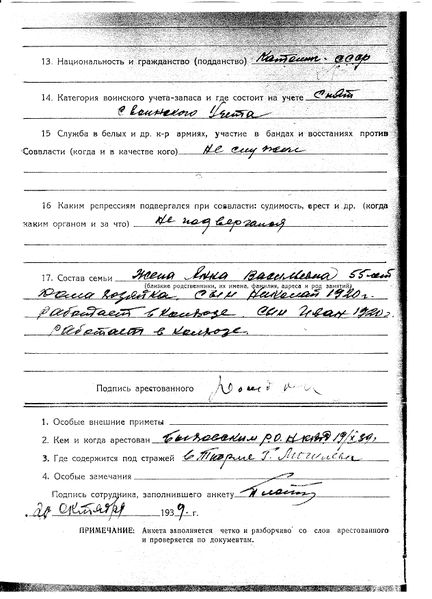 13. Национальность и гражданство (подданство) СССР
14. Категория воинского учета-запаса и где состоит на учете Снят
с воинского учета
15 Служба в белых и др. к-р армиях, участие в бандах и восстаниях против
Соввласти (когда и в качестве кого) не служил
16 Каким репрессиям подвергался при соввласти: судимость, арест и др. (когда
каким органом и за что) не подвергался
17. Состав семьи Жена Анна Васильевна 55-лет
(близкие родственники, их имена, фамилии, адреса и род занятий)
дома хозяйка. Сын Николай 1920 г.
работает в колхозе. Сын Иван 1920 г.
работает в колхозе.
Подпись арестованного
1. Особые внешние приметы
2. Кем и когда арестован Р.О. НКВД 19/X 39 г.
3. Где содержится под стражей в Тюрме г. Могилева
4. Особые замечания
Подпись сотрудника, заполнившего анкету
20 октября 1939 г.
ПРИМЕЧАНИЕ: Анкета заполняется четко и разборчиво со слов арестованного
и проверяется по документам.